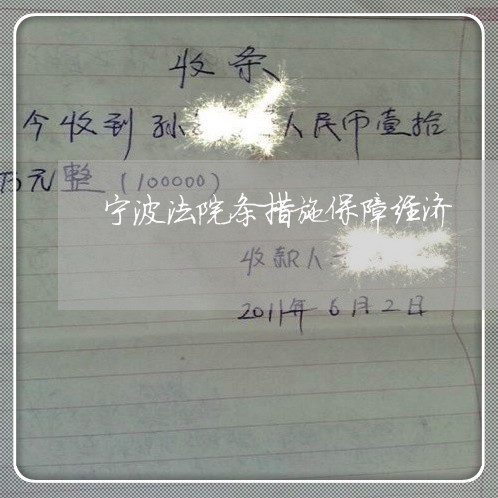 收条
今收到孙 人民币壹拾
万元整(100000)
宁波法院条措施保障经济
收款人
2011年6月2日